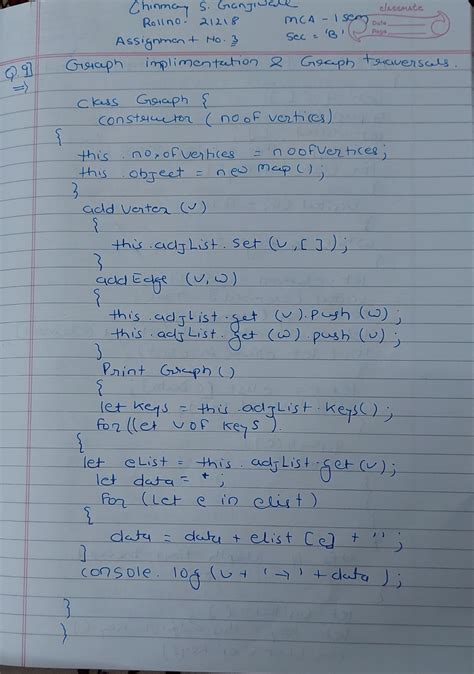 Chinmay S. Ganjiwale
Rollno. 21218 MCA - 1 sem
Assignment No. 3 Sec = 'B'
classmate
Date
Page
Q.9] Graph implimentation & Graph traversals.
=>
class Graph {
constructor (noof vertices)
{
this . no.ofvertices = noofvertices;
this . object = new map();
}
add vertex (v)
{
this . adjList . set (v, []);
}
add Edge (v, w)
{
this . adjList . get (v) . push (w);
this . adjList . get (w) . push (v);
}
Print Graph ()
{
let keys = this . adjList . keys();
for (let v of keys)
{
let eList = this . adjList . get (v);
let data =
for (let e in elist)
{
data = data + elist [e] + '' ;
}
console . log (v + '→' + data );
}
}